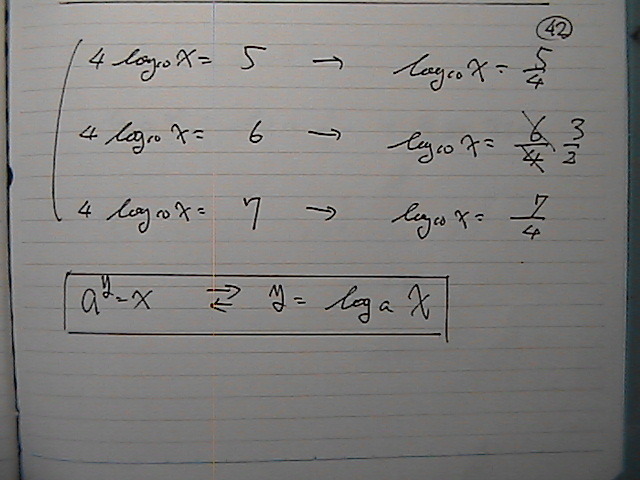 42
4 log₁₀ x = 5 → log₁₀ x = 5/4
4 log₁₀ x = 6 → log₁₀ x = 6/4 3/2
4 log₁₀ x = 7 → log₁₀ x = 7/4
a^y = x ⇄ y = log a x